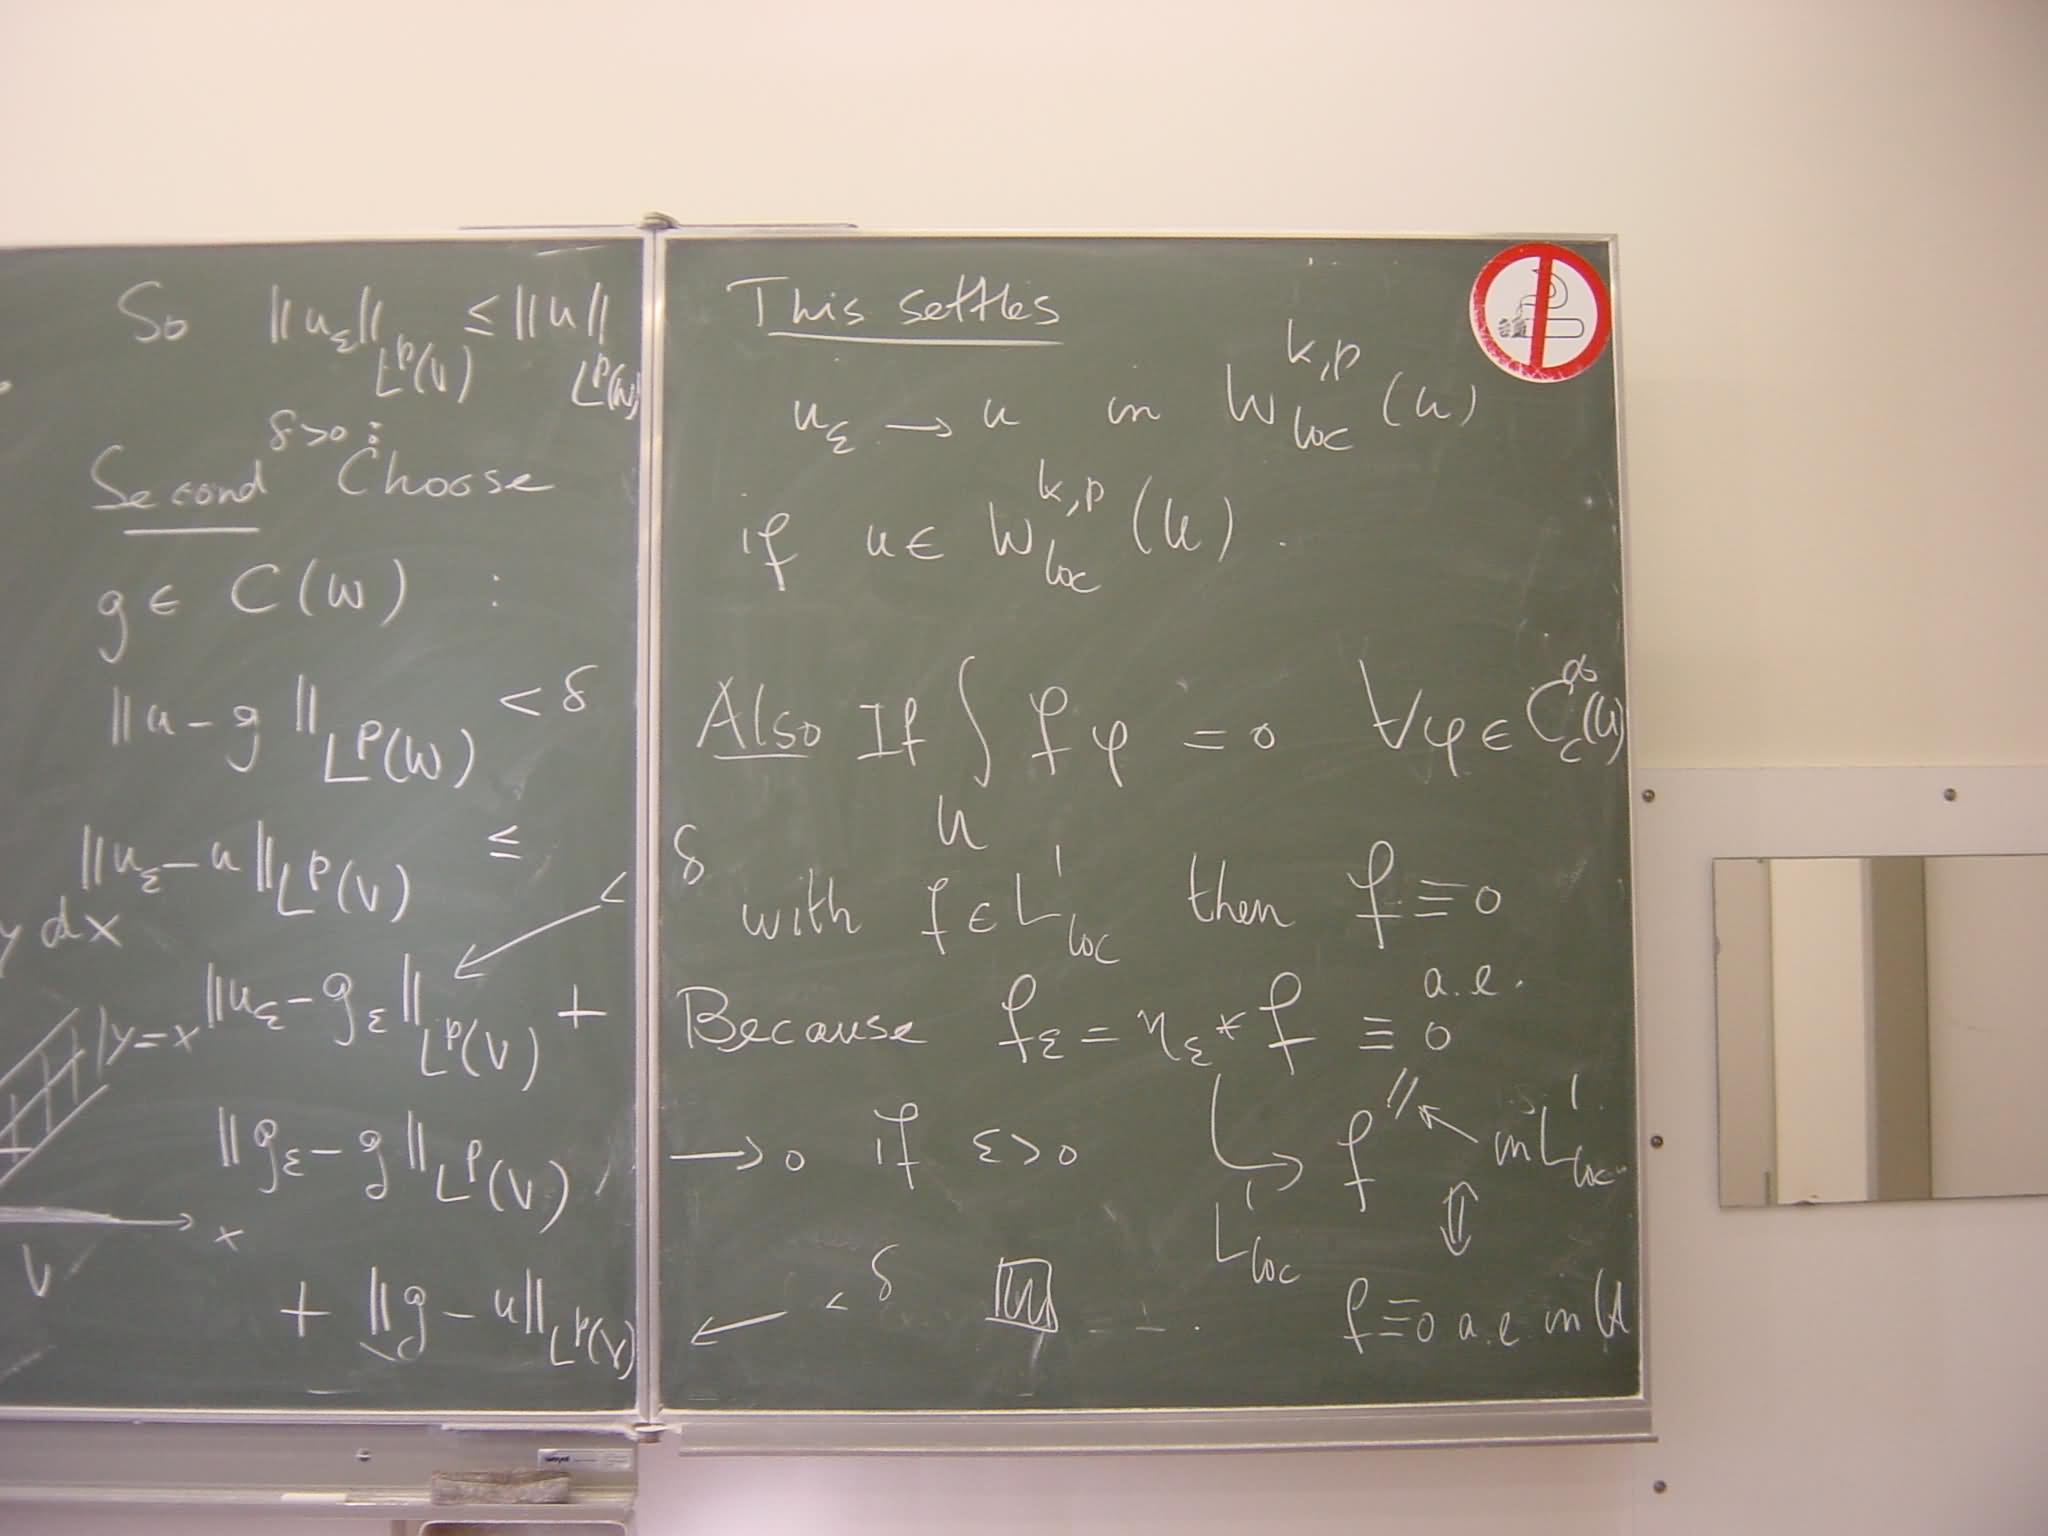 So ‖u_ε‖_{L^p(V)} ≤ ‖u‖_{L^p(W)}
δ>0 :
Second Choose
g ∈ C(W) :
‖u − g‖_{L^p(W)} < δ
‖u_ε − u‖_{L^p(V)} ≤
y dx
< δ
‖u_ε − g_ε‖_{L^p(V)} +
y=x
‖g_ε − g‖_{L^p(V)} → 0 if ε>0
x
V
+ ‖g − u‖_{L^p(V)} ← < δ
This settles
u_ε → u in W^{k,p}_{loc}(U)
if u ∈ W^{k,p}_{loc}(U).
Also If ∫_U f φ = 0 ∀φ ∈ C_c^∞(U)
with f ∈ L^1_{loc} then f ≡ 0
a.e.
Because f_ε = η_ε * f ≡ 0
↳ f = in L^1_{loc}
L^1_{loc} ⇕
f ≡ 0 a.e. in U